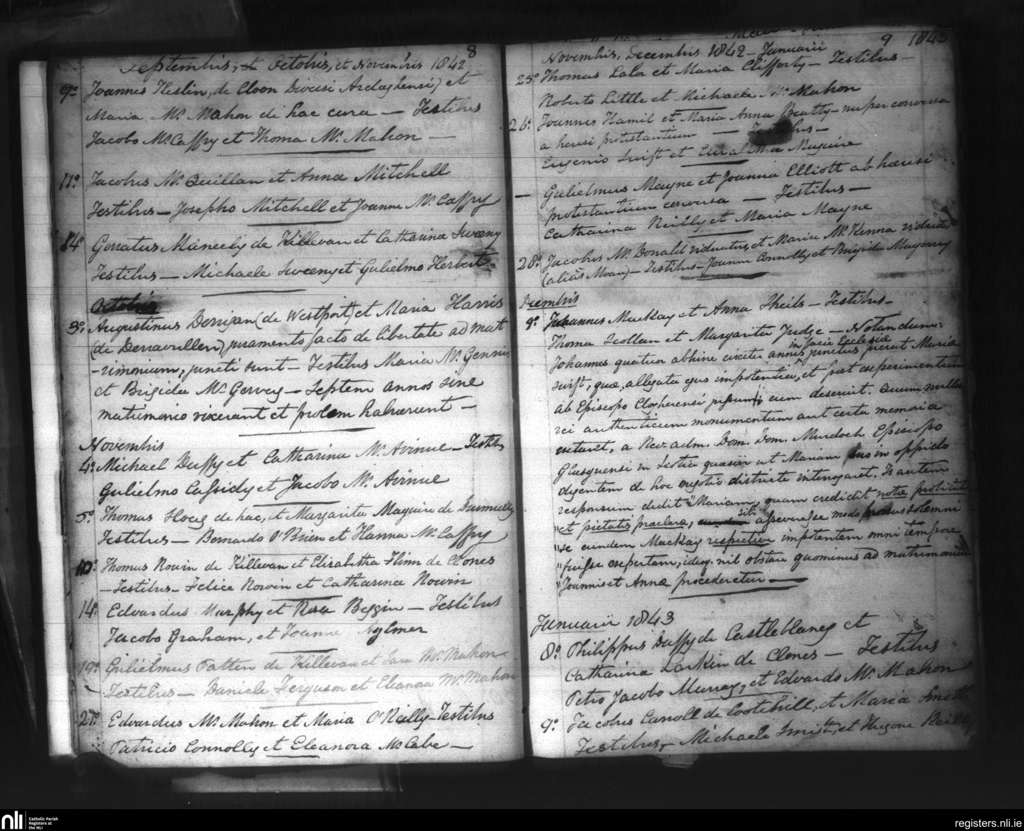 8
Septembris, Octobris, et Novembris 1842
9° Joannes Heslin, de Cloon Diocesi Ardaghensi) et
Maria Mc Mahon de hac cura — Testibus
Jacobo McCaffry et Thoma Mc Mahon —
11° Jacobus Mc Quillan et Anna Mitchell
Testibus — Josepho Mitchell et Joanne Mc Caffry
14 de Killevan et Catharina Sweeny
Testibus — Michaele Sweeny et Gulielmo Herbert
Octobris
3° Augustinus Derrigan (de Westport) et Maria Harris
(de Derravullen) juramento facto de libertate ad mat
-rimonium, juncti sunt — Testibus Maria Mc Gennis
et Brigida Mc Gervey — Septem annos sine
matrimonio vixerant et prolem habuerunt —
Novembris
4° Michael Duffy et Catharina Mc Avinue — Testibus
Gulielmo Cassidy et Jacobo Mc Avinue
5° Thomas de hac, et Margarita Maguire de
Testibus — Bernardo O'Brien et Hanna Mc Caffry
10° Thomas Nowin de Killevan et Elizabetha Flinn de Clones
— Testibus — Felice Nowin et Catharina Nowin
14° Edvardus Murphy et Rosa Beggin — Testibus
Jacobo Graham, et Joanne Aylmer
19° Gulielmus Patten de Killevan et Jana Mc Mahon
Testibus — Daniele Ferguson et Eleanora Mc Mahon
21° Edvardus Mc Mahon et Maria O'Reilly — Testibus
Patricio Connolly et Eleanora McCabe —
9 1843
Novembris, Decembris 1842 — Januarii
25° Thomas Lala et Maria Clifferty — Testibus —
Roberto Little et Michaele Mc Mahon
26° Joannes Hamil et Maria Anna Beatty — nuper conversa
a heresi protestantium — Testibus —
Eugenio Swift et Maguire
— Gulielmus Mayne et Joanna Elliott ab hæresi
protestantium conversa — Testibus —
Catharina Reilly et Maria Mayne
28° Jacobus Mc Donald viduatus, et Maria McKenna viduata
(alias Moan) — Testibus — Joanne Connolly et Brigida
Decembris
9° Johannes Mackay et Anna Sheils — Testibus —
Thoma Scollan et Margarita Judge — Notandum:
in facie Ecclesiæ
Johannes quatuor abhinc circiter annis junctus fuerat Mariæ
Swift, quæ, allegata ejus impotentia, et post experimentum
ab Episcopo Clogherensi eum deseruit. Quum nullum
rei authenticum monumentum aut certa memoria
extaret, a Rev. adm. Dom. Dom. Murdoch Episcopo
Glasguensi in Scotia quæsivi ut Mariam suo in oppido
degentem de hoc negotio districte interrogaret. Is autem
responsum dedit "Mariam, quam credidit notæ probitatis
"et pietatis præclaræ, sibi asseverasse modo solemni
"se eundem Mackay respective impotentem omni tempore
"fuisse expertam, ideoq. nil obstare quominus ad matrimonium
"Joannis et Annæ procederetur —
Januarii 1843
8° Philippus Duffy de Castleblaney et
Catharina Larkin de Clones — Testibus
Petro Jacobo Murray, et Edvardo Mc Mahon
9° Jacobus Carroll de Cootehill, et Maria Smith
Testibus, — Michaele Smith, et Hugone Reilly
nli Catholic Parish Registers at the NLI
registers.nli.ie